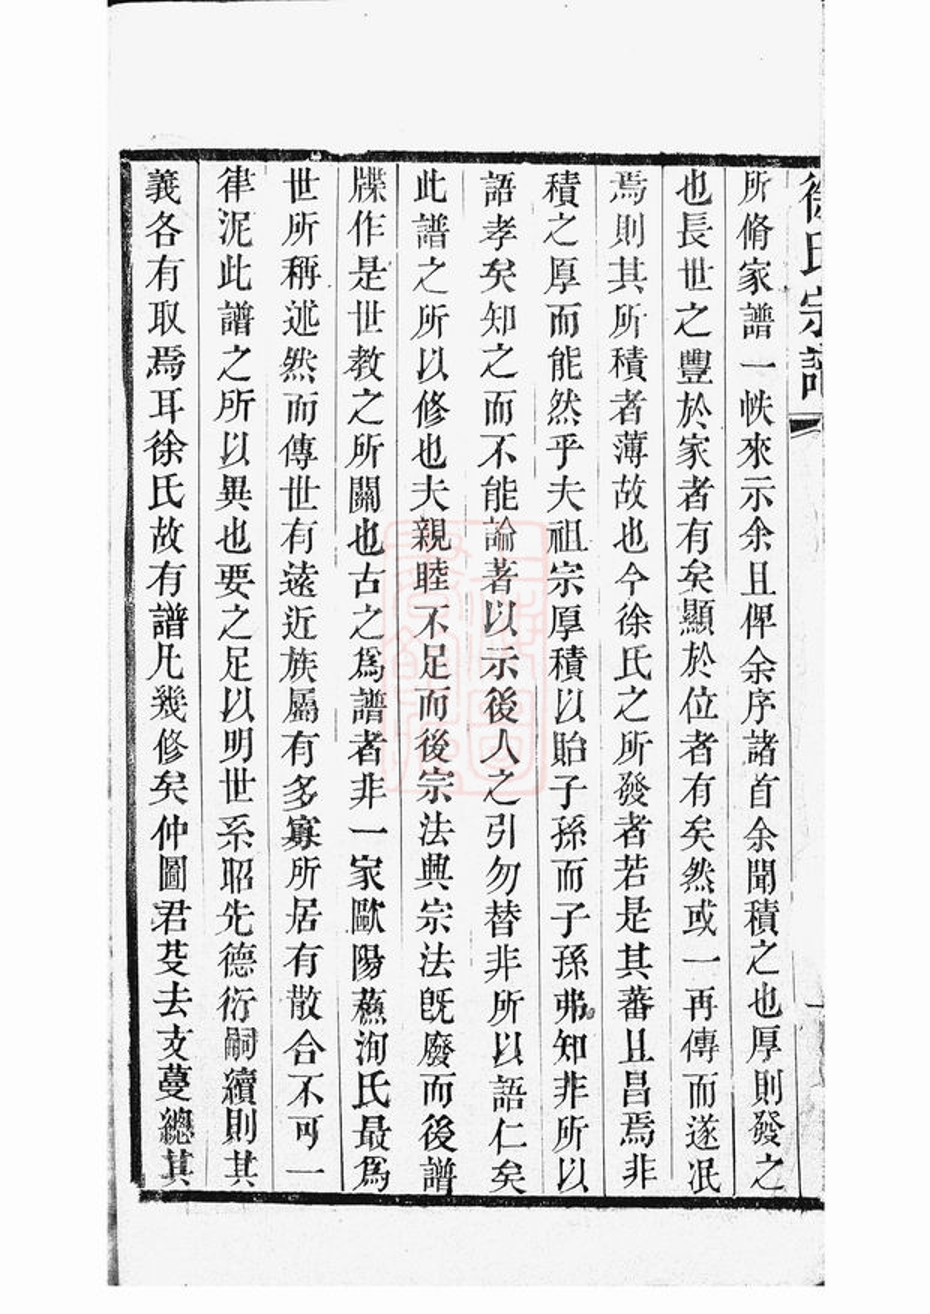 徐氏宗譜
所脩家譜一帙來示余且俾余序諸首余聞積之也厚則發之
也長世之豐於家者有矣顯於位者有矣然或一再傳而遂泯
焉則其所積者薄故也今徐氏之所發者若是其蕃且昌焉非
積之厚而能然乎夫祖宗厚積以貽子孫而子孫弗知非所以
語孝矣知之而不能論著以示後人之引勿替非所以語仁矣
此譜之所以修也夫親睦不足而後宗法興宗法既廢而後譜
牒作是世教之所關也古之爲譜者非一家歐陽蘇洵氏最爲
世所稱述然而傳世有遠近族屬有多寡所居有散合不可一
律泥此譜之所以異也要之足以明世系昭先德衍嗣續則其
義各有取焉耳徐氏故有譜凡幾修矣仲圖君芟去支蔓總其